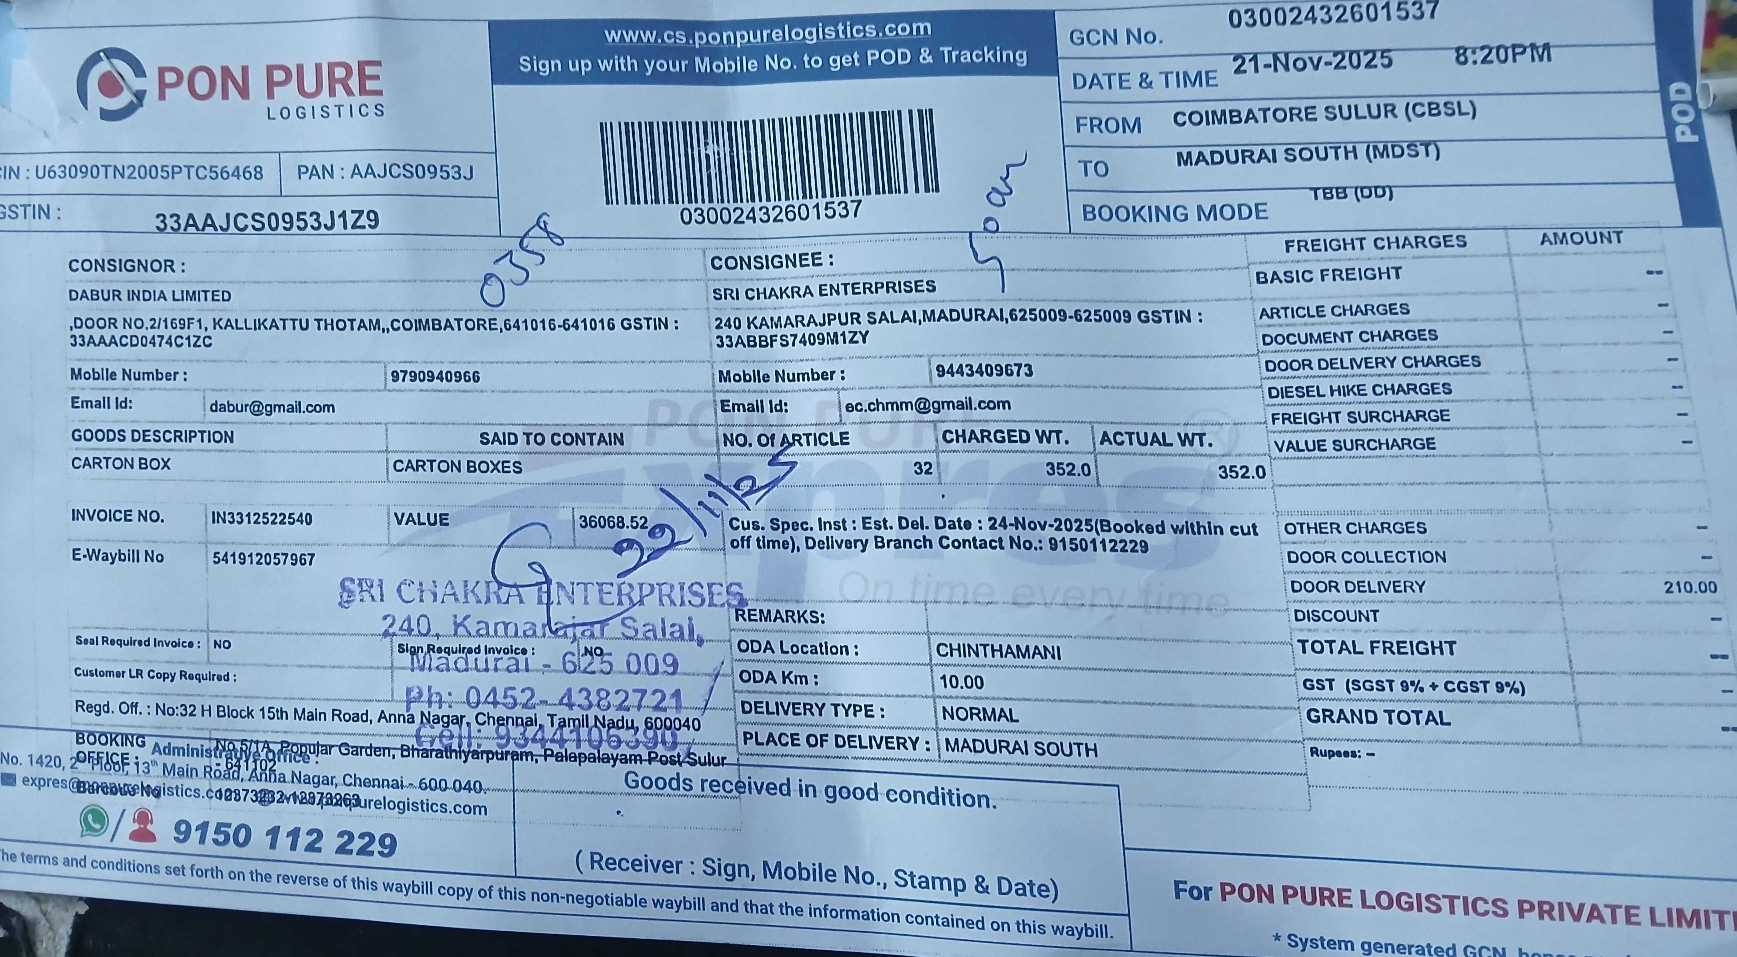 PON PURE
LOGISTICS
www.cs.ponpurelogistics.com
Sign up with your Mobile No. to get POD & Tracking
03002432601537
GCN No. 03002432601537
DATE & TIME 21-Nov-2025 8:20PM
FROM COIMBATORE SULUR (CBSL)
TO MADURAI SOUTH (MDST)
BOOKING MODE TBB (DD)
POD
IN : U63090TN2005PTC56468 PAN : AAJCS0953J
GSTIN : 33AAJCS0953J1Z9
0358
CONSIGNOR :
DABUR INDIA LIMITED
,DOOR NO.2/169F1, KALLIKATTU THOTAM,,COIMBATORE,641016-641016 GSTIN :
33AAACD0474C1ZC
Mobile Number : 9790940966
Email Id: dabur@gmail.com
CONSIGNEE :
SRI CHAKRA ENTERPRISES
240 KAMARAJPUR SALAI,MADURAI,625009-625009 GSTIN :
33ABBFS7409M1ZY
Mobile Number : 9443409673
Email Id: ec.chmm@gmail.com
GOODS DESCRIPTION SAID TO CONTAIN NO. Of ARTICLE CHARGED WT. ACTUAL WT.
CARTON BOX CARTON BOXES 32 352.0 352.0
INVOICE NO. IN3312522540 VALUE 36068.52
E-Waybill No 541912057967
22/11/25
Cus. Spec. Inst : Est. Del. Date : 24-Nov-2025(Booked within cut
off time), Delivery Branch Contact No.: 9150112229
PON PURE
Xpres
On time every time
SRI CHAKRA ENTERPRISES
240, Kamarajar Salai,
Madurai - 625 009
Ph: 0452-4382721
Cell: 9344106390
Seal Required Invoice : NO Sign Required Invoice : NO
Customer LR Copy Required :
REMARKS:
ODA Location : CHINTHAMANI
ODA Km : 10.00
DELIVERY TYPE : NORMAL
PLACE OF DELIVERY : MADURAI SOUTH
FREIGHT CHARGES AMOUNT
BASIC FREIGHT --
ARTICLE CHARGES –
DOCUMENT CHARGES –
DOOR DELIVERY CHARGES –
DIESEL HIKE CHARGES –
FREIGHT SURCHARGE –
VALUE SURCHARGE –
OTHER CHARGES –
DOOR COLLECTION –
DOOR DELIVERY 210.00
DISCOUNT –
TOTAL FREIGHT --
GST (SGST 9% + CGST 9%) –
GRAND TOTAL --
Rupees: –
Regd. Off. : No:32 H Block 15th Main Road, Anna Nagar, Chennai, Tamil Nadu, 600040
BOOKING OFFICE : No.5/1A, Popular Garden, Bharathiyarpuram, Palapalayam Post Sulur
- 641102
Administrative Office :
No. 1420, 2nd Floor, 13th Main Road, Anna Nagar, Chennai - 600 040.
9150 112 229
Goods received in good condition.
( Receiver : Sign, Mobile No., Stamp & Date)
The terms and conditions set forth on the reverse of this waybill copy of this non-negotiable waybill and that the information contained on this waybill.
For PON PURE LOGISTICS PRIVATE LIMIT
* System generated GCN,